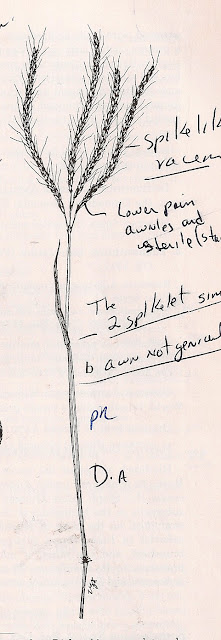 spikelik
racem
Lower pair
awnles and
sterile (st
The
2 spikelet sim
b awn not genicul
pr
D.A